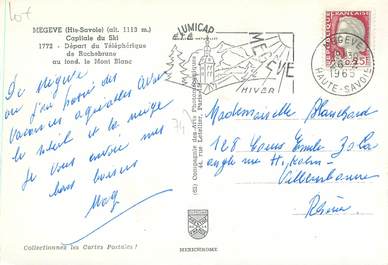 Lot
MEGEVE (Hte-Savoie) (alt. 1113 m.)
Capitale du Ski
1772 - Départ du Téléphérique
de Rochebrune
au fond, le Mont Blanc
LUMICAP
MEGEVE
HIVER
MEGEVE
1965
HAUTE-SAVOIE
0,25
De Megève
où j'ai passé des
Vacances agréables avec
le soleil et la neige
Je vous envoie mes
bons baisers
74
Compagnie des Arts Photomécaniques
44, rue Letellier, Paris
Mademoiselle Blanchard
128 Cours Emile Zola
angle rue H. Kahn
Villeurbanne
Rhône
Collectionnez les Cartes Postales !
MEXICHROME